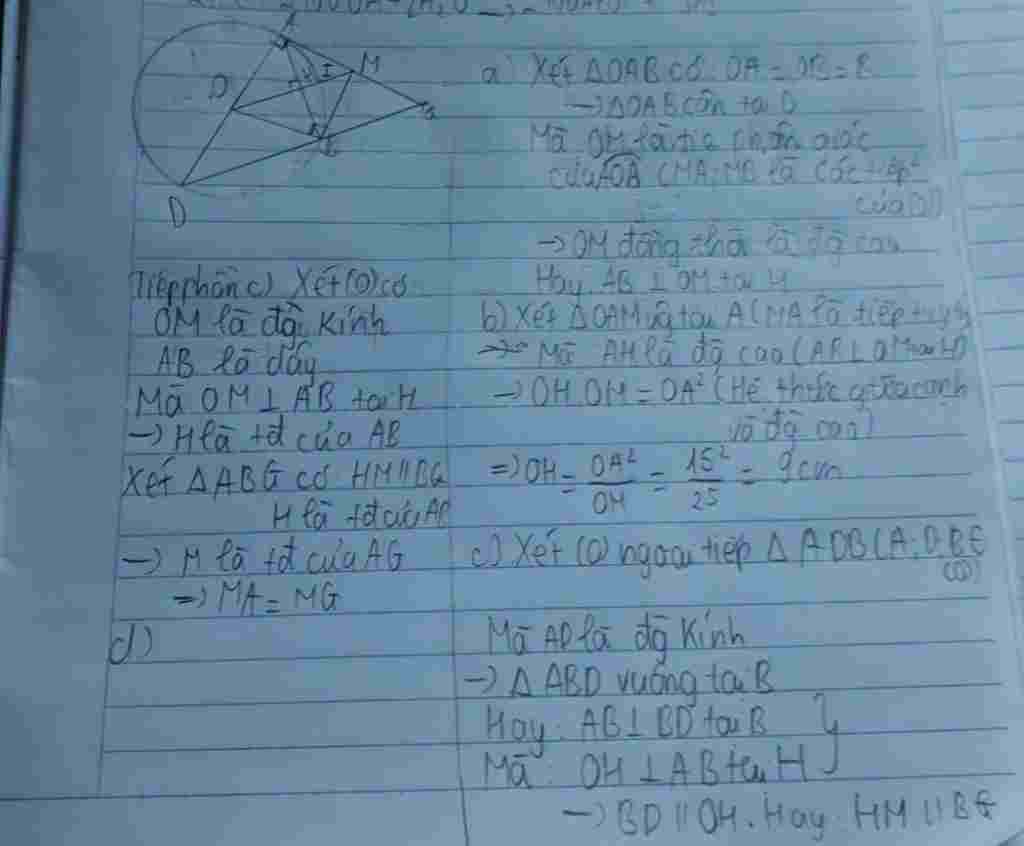 A
O
H
I
M
G
B
D
a) Xét ΔOAB có OA = OB = R
→ ΔOAB cân tại O
Mà OM là tia phân giác
của AOB (MA, MB là các tiếp²
của (O))
→ OM đồng thời là đg cao
Hay AB ⊥ OM tại H
b) Xét ΔOAM vg tại A (MA là tiếp tuyến)
Mà AH là đg cao (AB ⊥ OM tại H)
→ OH.OM = OA² (Hệ thức giữa cạnh
và đg cao)
=) OH = OA²/OM = 15²/25 = 9cm
c) Xét (O) ngoại tiếp Δ ADB (A;D;B ∈
(O))
Mà AD là đg kính
→ Δ ABD vuông tại B
Hay: AB ⊥ BD tại B
Mà: OH ⊥ AB tại H
→ BD // OH. Hay HM // BG
Tiếp phần c) Xét (O) có
OM là đg kính
AB là dây
Mà OM ⊥ AB tại H
→ H là tđ của AB
Xét ΔABG có HM // BG
H là tđ của AB
→ M là tđ của AG
=) MA = MG
d)